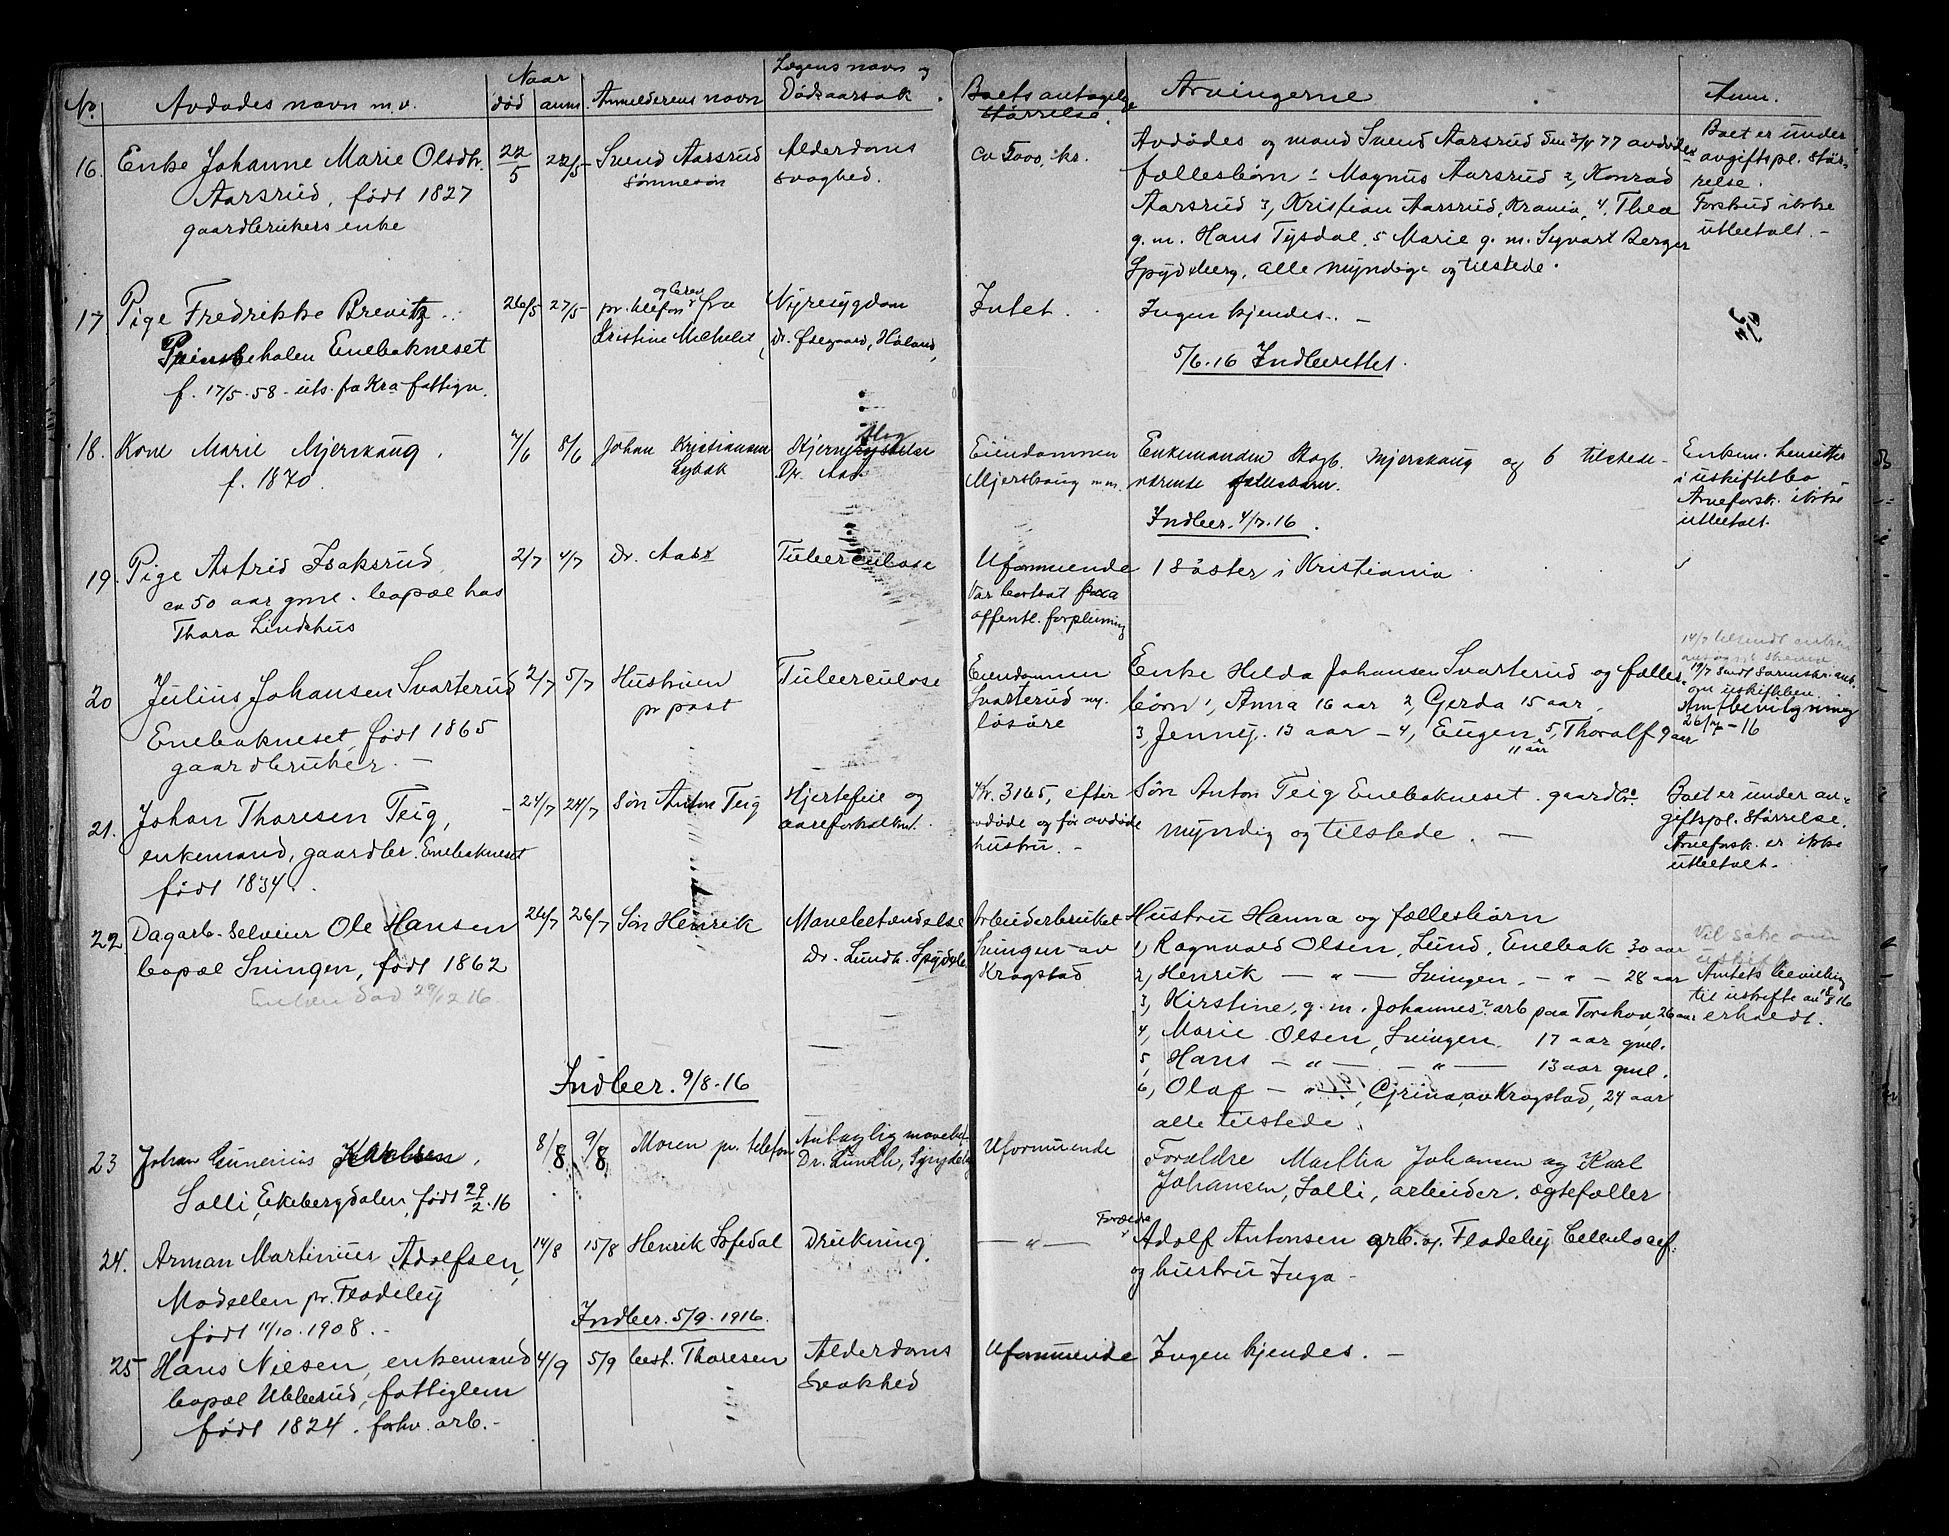 No. Avdødes navn m.v. Naar død anm. Anmelderens navn Lægens navn og Dødsaarsak. Boets antagelige størrelse. Arvingerne Anm.
16. Enke Johanne Marie Olsdtr. 22/5 22/5 Svend Aarsrud Alderdoms ca 5000 kr. Avdødes og mand Svend Aarsrud den 3/4 77 avdødes Boet er under
Aarsrud, født 1827 sønnesøn svaghed. fællesbørn: Magnus Aarsrud 2, Konrad avgiftspl. stør-
gaardbrukers enke Aarsrud 3, Kristian Aarsrud, Krania, 4, Thea relse.
g.m. Hans Tysdal, 5 Marie g.m. Syvart Berger Forskud ikke
Spydeberg, alle myndige og tilstede. utbetalt. -
17 Pige Fredrikke Brevitz. 26/5 27/5 pr. telefon og brev fra Nyresygdom Intet. Ingen kjendes. -
Prinsbehalen Enebakneset Kristine Michelet Dr. Østgaard, Høland, 5/6.16 Indberettet.
f. 17/5.58 - uts. fa Kra fattigv.
18. Kone Marie Mjerskaug. 7/6 8/6 Johan Kristiansen Eiendommen Enkemanden Aagt. Mjerskaug og 6 tilstede- Enkem. hensitter
f. 1870. Lybak Dr. Aas Mjerskaug m.m. værende fællesbørn. i uskiftetbo
Indber. 4/7.16. Arveforsk. ikke
utbetalt.
19. Pige Astrid Isaksrud 2/7 4/7 Dr. Aass Tuberculose Uformuende 1 Søster i Kristiania
ca 50 aar gml. bopæl hos Var bortsat paa
Thara Lindshus offentl. forpleining
20 Julius Johansen Svarterud 2/7 5/7 Hustruen Tuberculose Eiendommen Enke Helda Johansen Svarterud og fælles-
Enebakneset, født 1865 pr post Svarterud og børn 1, Anna 16 aar 2, Gerda 15 aar. om uskiftebev.
gaardbruker. - løsøre 3, Jenny. 13 aar - 4, Eugen 11 aar 5, Thoralf 9 aar Amtbevilgning
26/7 - 16
21. Johan Thoresen Teig, - 24/7 24/7 Søn Anton Teig Hjertefeil og Kr. 3165, efter Søn Anton Teig Enebakneset. gaardbr. Boet er under av-
enkemand, gaardbr. Enebakneset aareforkalkn. avdøde og før avdøde myndig og tilstede. - giftspl. størrelse.
født 1834. hustru. - Arveforsk. er ikke
utbetalt. -
22 Dagarb. selveier Ole Hansen 26/7 26/7 Søn Henrik Mavebetændelse Arbeiderbruket Hustru Hanna og fællesbørn
bopæl Svingen, født 1862 Dr. Lundh. Spydeb. Svingen av 1, Ragnvald Olsen, Lund, Enebak 30 aar
Enken død 29/12 16 Kragstad 2, Henrik - " - Svingen - " - 28 aar Amtets bevilling
3, Kirstine, g.m. Johannes? arb paa Torshov, 26 aar til uskifte av 18/8 16
4, Marie Olsen, Svingen. 17 aar gml. erholdt.
5, Hans - " - - " - 13 aar gml.
Indber. 9/8-16 6, Olaf - " - , Grina, av Kragstad, 24 aar
alle tilstede.
23 Johan Gunerius Karlsen, 8/8 9/8 Moren pr. telefon Dr. Lundh, Spydeb. Uformuende Forældre Martha Johansen og Karl
Solli, Ekebergdalen, født 29/2.16 Johansen, Solli, arbeider. ægtefæller
24. Arman Martinius Adolfsen, 14/8 15/8 Henrik Sofedal Drukning. - " - Forældre Adolf Antonsen arb. v. Fladeby Cellulosef.
Modellen pr. Fladeby og hustru Inga -
født 11/10.1908. - Indber. 5/9.1916.
25 Hans Nilsen, enkemand 4/9 5/9 best. Thoresen Alderdoms Uformuende Ingen kjendes. -
bopæl Ubberud, fattiglem svakhed
født 1824. forhv. arb. -